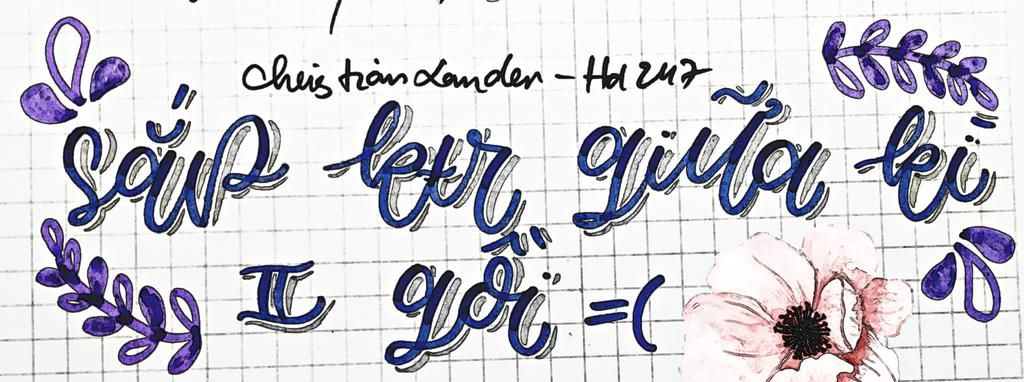 Christian Landen - Hd 247
sắp ktr giữa kì
II gồi =(